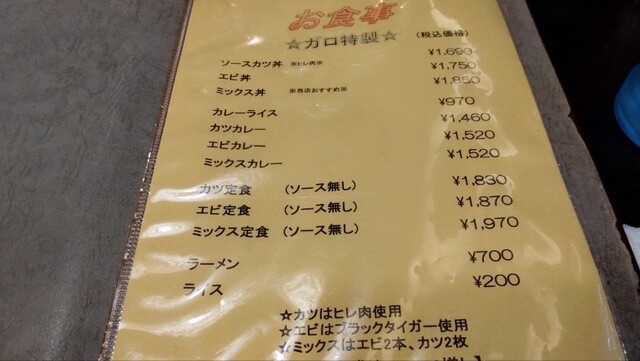 お食事
☆ガロ特製☆ (税込価格)
ソースカツ丼 ※ヒレ肉※ ¥1,690
エビ丼 ¥1,750
ミックス丼 ※当店おすすめ※ ¥1,850
カレーライス ¥970
カツカレー ¥1,460
エビカレー ¥1,520
ミックスカレー ¥1,520
カツ定食 (ソース無し) ¥1,830
エビ定食 (ソース無し) ¥1,870
ミックス定食 (ソース無し) ¥1,970
ラーメン ¥700
ライス ¥200
☆カツはヒレ肉使用
☆エビはブラックタイガー使用
☆ミックスはエビ2本、カツ2枚